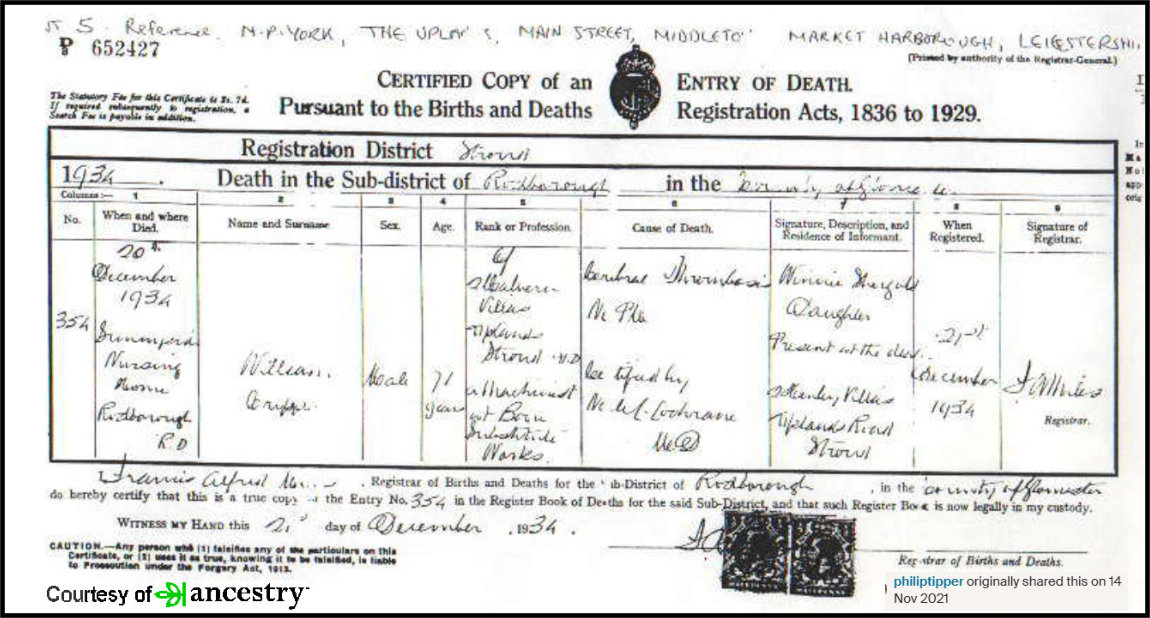 5. Reference. N.P. YORK, THE UPLA S, MAIN STREET, MIDDLETO MARKET HARBOROUGH, LEICESTERSHI
P 652427
(Printed by authority of the Registrar-General.)
CERTIFIED COPY of an ENTRY OF DEATH.
Pursuant to the Births and Deaths Registration Acts, 1836 to 1929.
The Statutory Fee for this Certificate is 2s. 7d.
If required subsequently to registration, a
Search Fee is payable in addition.
Registration District Stroud
1934. Death in the Sub-district of Rodborough in the
Columns:— 1 2 3 4 5 6 7 8 9
No.
When and where Died.
Name and Surname
Sex.
Age.
Rank or Profession.
Cause of Death.
Signature, Description, and Residence of Informant.
When Registered.
Signature of Registrar.
354
20th
December
1934
Nursing
Home
Rodborough
R.D
William
Male
71
years
of
Villas
Uplands
Stroud U.D
a Machinist
at Bone
Substitute
Works.
Cerebral Thrombosis
Certified by
Cochrane
Winnie
Daughter
Present at the death
Stanley Villas
Uplands Road
Stroud
21st
December
1934
Registrar.
Francis Alfred , Registrar of Births and Deaths for the Sub-District of Rodborough , in the County of Gloucester
do hereby certify that this is a true copy of the Entry No. 354 in the Register Book of Deaths for the said Sub-District, and that such Register Book is now legally in my custody.
WITNESS MY HAND this 21st day of December , 1934.
CAUTION.—Any person who (1) falsifies any of the particulars on this
Certificate, or (2) uses it as true, knowing it to be falsified, is liable
to Prosecution under the Forgery Act, 1913.
Registrar of Births and Deaths.
Courtesy of ancestry
philiptipper originally shared this on 14
Nov 2021